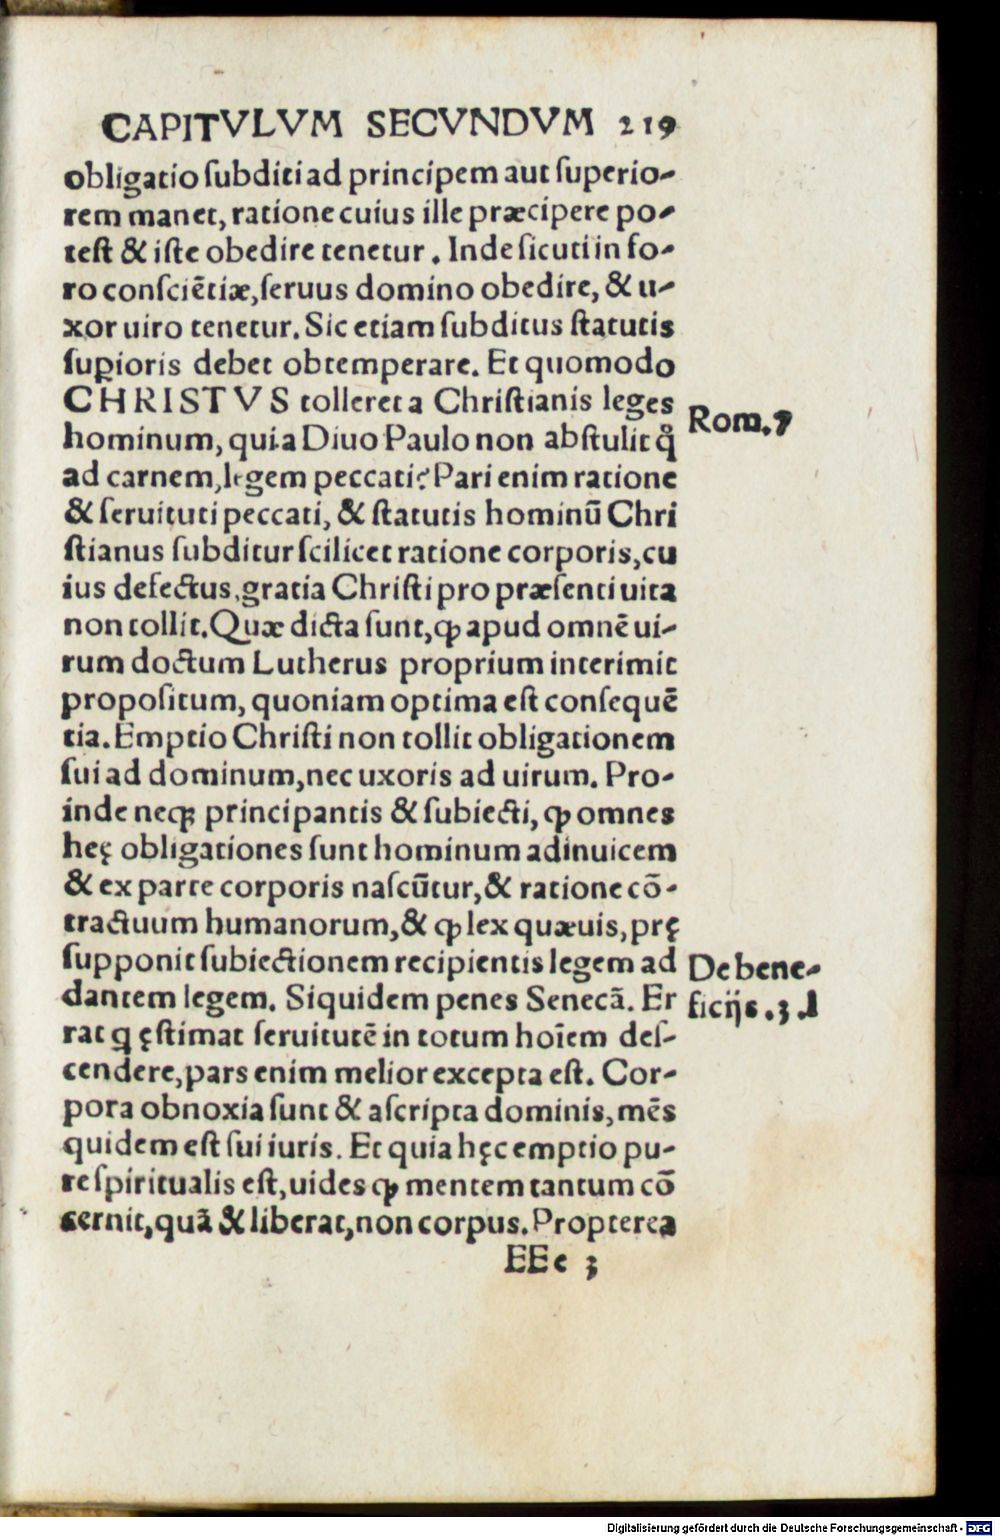 CAPITVLVM SECVNDVM 219
obligatio ſubditi ad principem aut ſuperio-
rem manet, ratione cuius ille præcipere po-
teſt & iſte obedire tenetur. Inde ſicuti in fo-
ro conſciētiæ, ſeruus domino obedire, & u-
xor uiro tenetur. Sic etiam ſubditus ſtatutis
ſuꝑioris debet obtemperare. Et quomodo
CHRISTVS tolleret a Chriſtianis leges
hominum, quia Diuo Paulo non abſtulit q̊
ad carnem, legem peccati? Pari enim ratione
& ſeruituti peccati, & ſtatutis hominū Chri
ſtianus ſubditur ſcilicet ratione corporis, cu
ius defectus, gratia Chriſti pro præſenti uita
non tollit. Quæ dicta ſunt, ꝙ apud omnē ui-
rum doctum Lutherus proprium interimit
propoſitum, quoniam optima eſt conſequē
tia. Emptio Chriſti non tollit obligationem
ſui ad dominum, nec uxoris ad uirum. Pro-
inde neqꝫ principantis & ſubiecti, ꝙ omnes
heę obligationes ſunt hominum adinuicem
& ex parte corporis naſcūtur, & ratione cō-
tractuum humanorum, & ꝙ lex quæuis, prę
ſupponit ſubiectionem recipientis legem ad
dantem legem. Siquidem penes Senecā. Er
rat q ęſtimat ſeruitutē in totum hoīem deſ-
cendere, pars enim melior excepta eſt. Cor-
pora obnoxia ſunt & aſcripta dominis, mēs
quidem eſt ſui iuris. Et quia hęc emptio pu-
re ſpiritualis eſt, uides ꝙ mentem tantum cō
cernit, quā & liberat, non corpus. Propterea
EEe 3
Rom. 7
De bene-
ficijs. 3. l
Digitalisierung gefördert durch die Deutsche Forschungsgemeinschaft - DFG